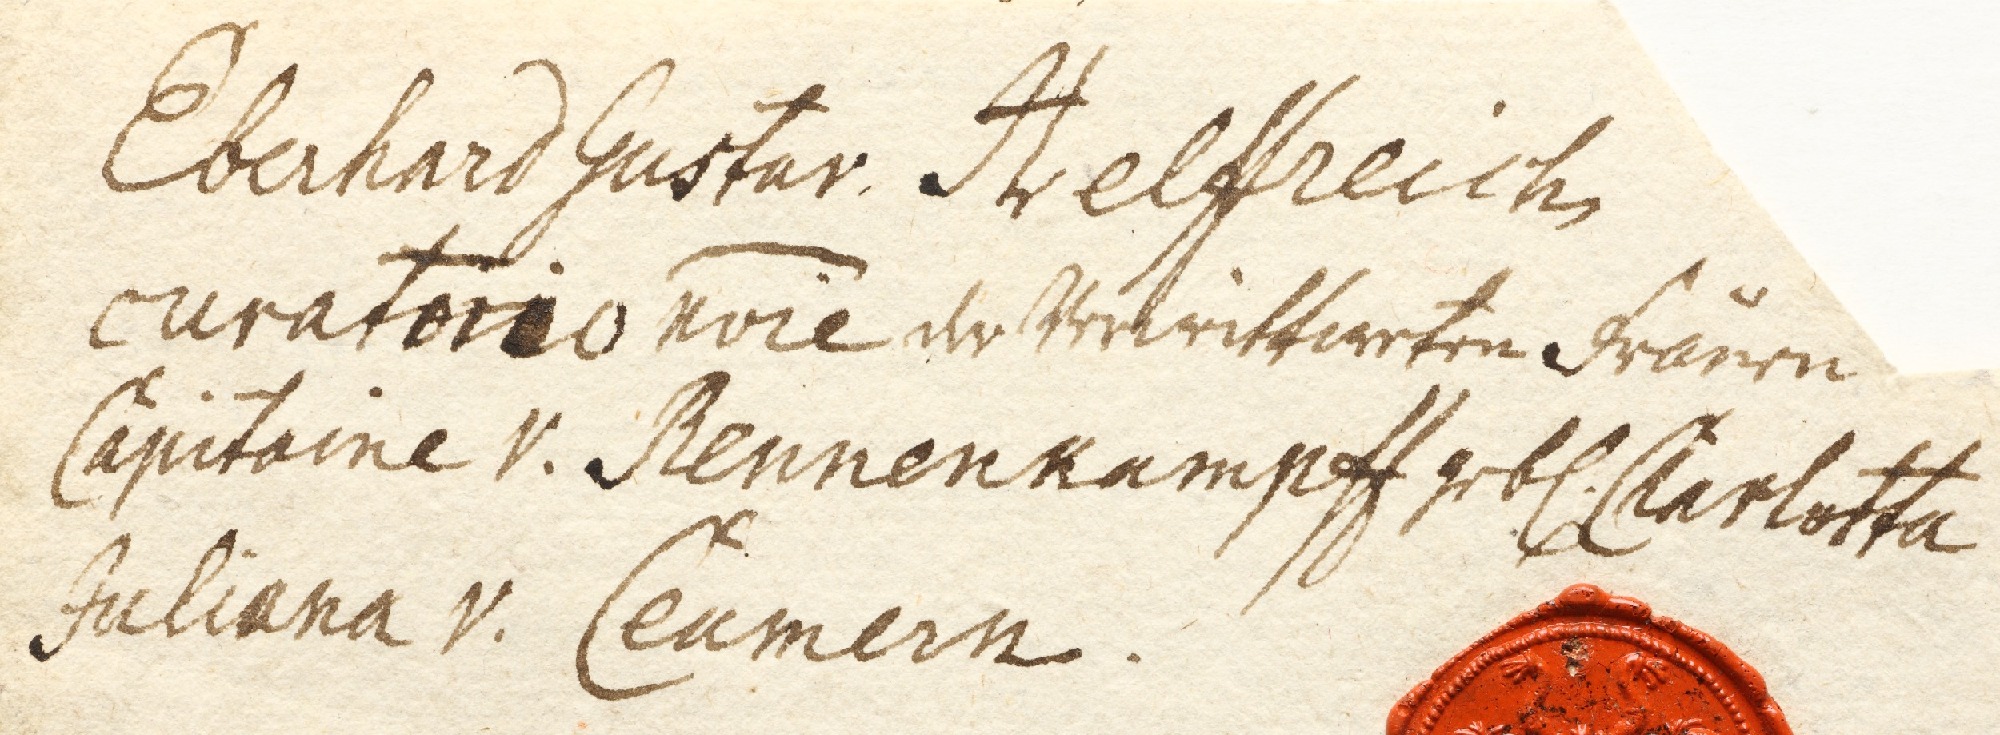 Eberhard Gustav. Helffreich,
curatorio noie der Verwittweten Frauen
Capitaine v. Rennenkampff gebl. Charlotta
Juliana v. Ceumern.